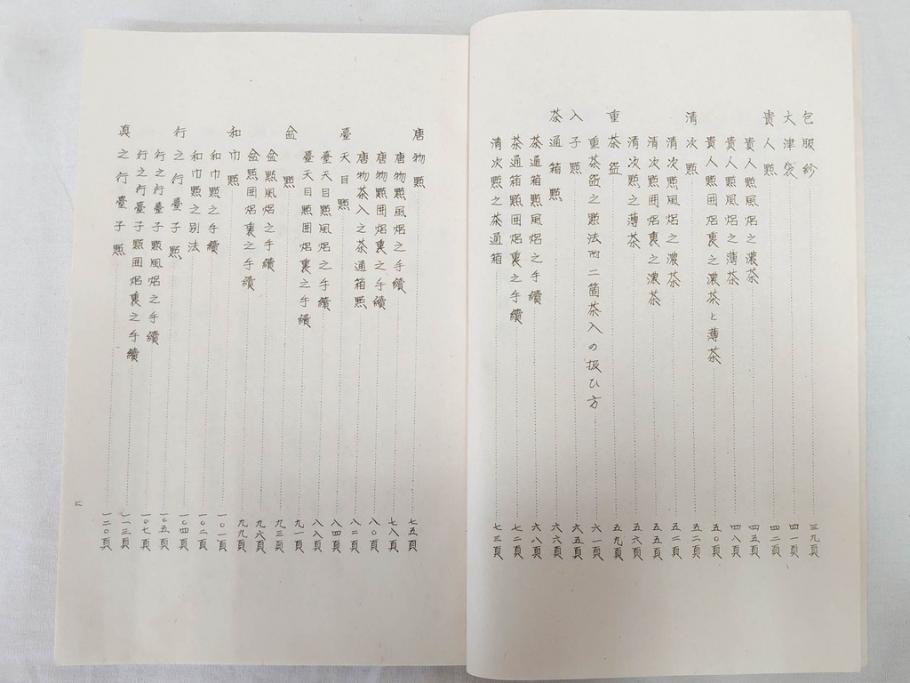 包服紗 三九頁
大津袋 四一頁
貴人點 四二頁
貴人點風炉之濃茶 四五頁
貴人點風炉之薄茶 四八頁
貴人點囲炉裏之濃茶と薄茶 五〇頁
清次點 五二頁
清次點風炉之濃茶 五二頁
清次點囲炉裏之濃茶 五五頁
清次點之薄茶 五六頁
重茶盌 五九頁
重茶盌之點法附二箇茶入の扱ひ方 六一頁
入子點 六五頁
茶通箱點 六六頁
茶通箱點風炉之手續 六八頁
茶通箱點囲炉裏之手續 七二頁
清次點之茶通箱 七三頁
唐物點 七五頁
唐物點風炉之手續 七八頁
唐物點囲炉裏之手續 八〇頁
唐物茶入之茶通箱點 八二頁
臺天目點 八四頁
臺天目點風炉之手續 八八頁
臺天目點囲炉裏之手續 九一頁
盆點 九三頁
盆點風炉之手續 九六頁
盆點囲炉裏之手續 九九頁
和巾點 一〇一頁
和巾點之手續 一〇二頁
和巾點之別法 一〇四頁
行之行臺子點 一〇五頁
行之行臺子點風炉之手續 一〇七頁
行之行臺子點囲炉裏之手續 一一三頁
真之行臺子點 一二〇頁